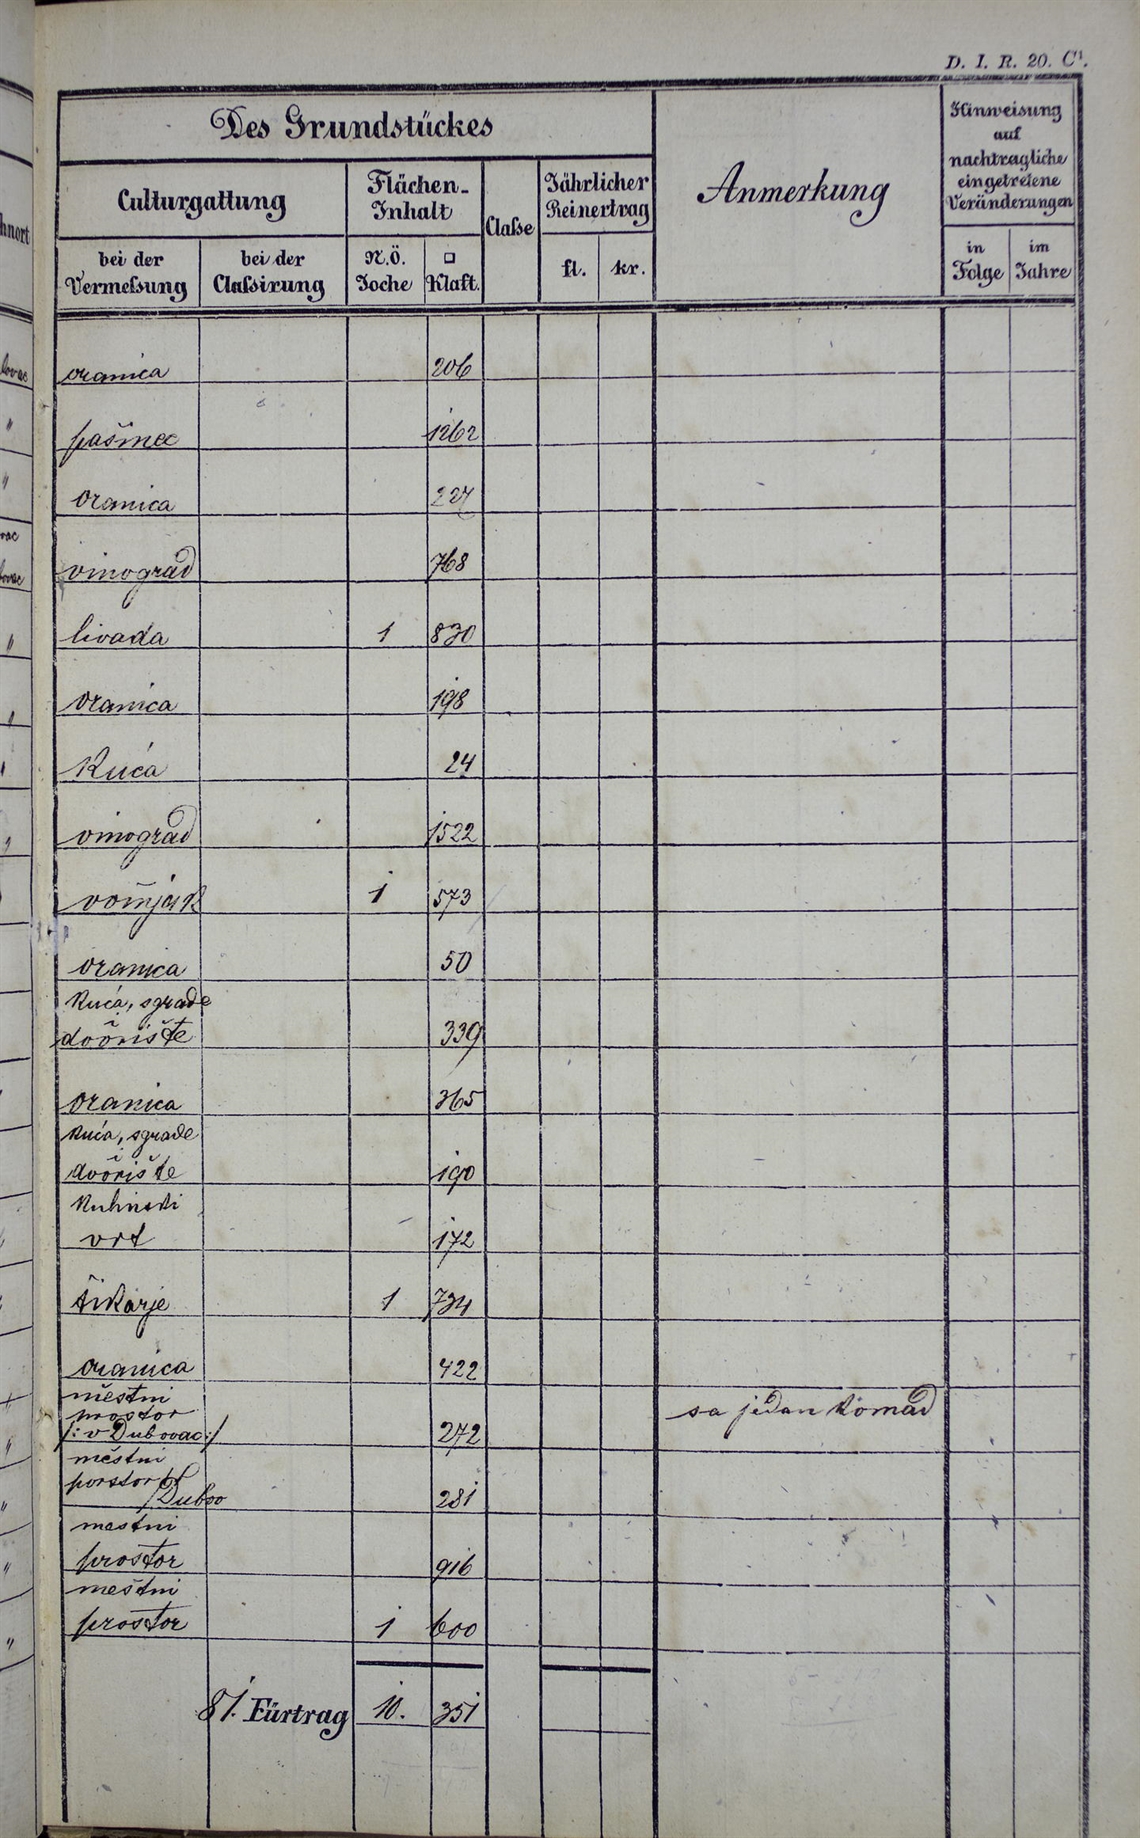 D. I. R. 20. C¹.
Des Grundstückes
Culturgattung
Flächen-
Inhalt
Claſse
Jährlicher
Reinertrag
Anmerkung
Hinweisung
auf
nachtragliche
eingetretene
Veränderungen
bei der
Vermeſsung
bei der
Claſsirung
N.Ö.
Joche
□
Klaft.
fl.
kr.
in
Folge
im
Jahre
oranica 206
pašinec 1262
oranica 227
vinograd 768
livada 1 830
oranica 198
Kuća 24
vinograd 1522
1 573
oranica 50
Kuća, sgrade
i
dvorište 339
oranica 365
Kuća, sgrade
i
dvorište 190
Kuhinski
vrt 172
šikarje 1 734
oranica 422
městni
prostor
/: v Dubovac :/ 272 sa jedan Komad
městni
porstor
/Dubov 281
mestni
prostor 916
městni
prostor 1 600
81. Fürtrag 10. 351